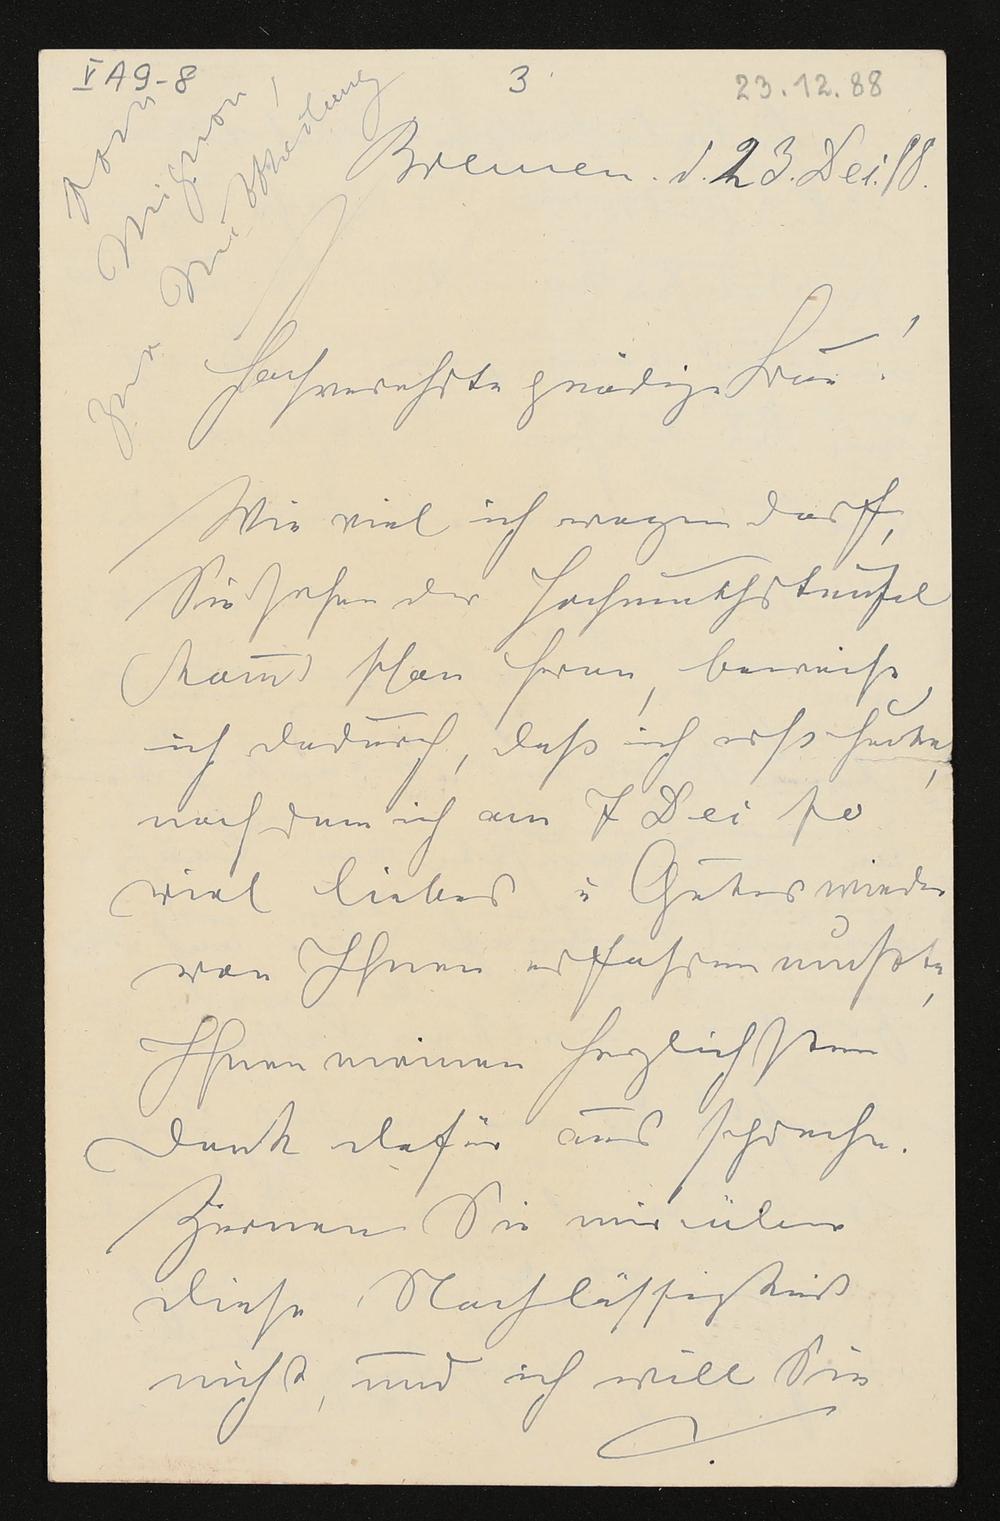 V A 9-8
3
23.12.88
Bremen. d. 23. Dei. 88.
Mignon
zur
Hochverehrte gnädige Frau!
Wie viel ich wagen darf,
Sie sehen der Hochmuthsteufel
kam schon heran, beweise
ich dadurch, daß ich erst heute,
nachdem ich am 7 Dei so
viel liebes u Gutes wieder
von Ihnen erfahren mußte,
Ihnen meinen herzlichsten
Dank dafür aus spreche.
Zürnen Sie mir über
diese Nachlässigkeit
nicht, und ich will Sie